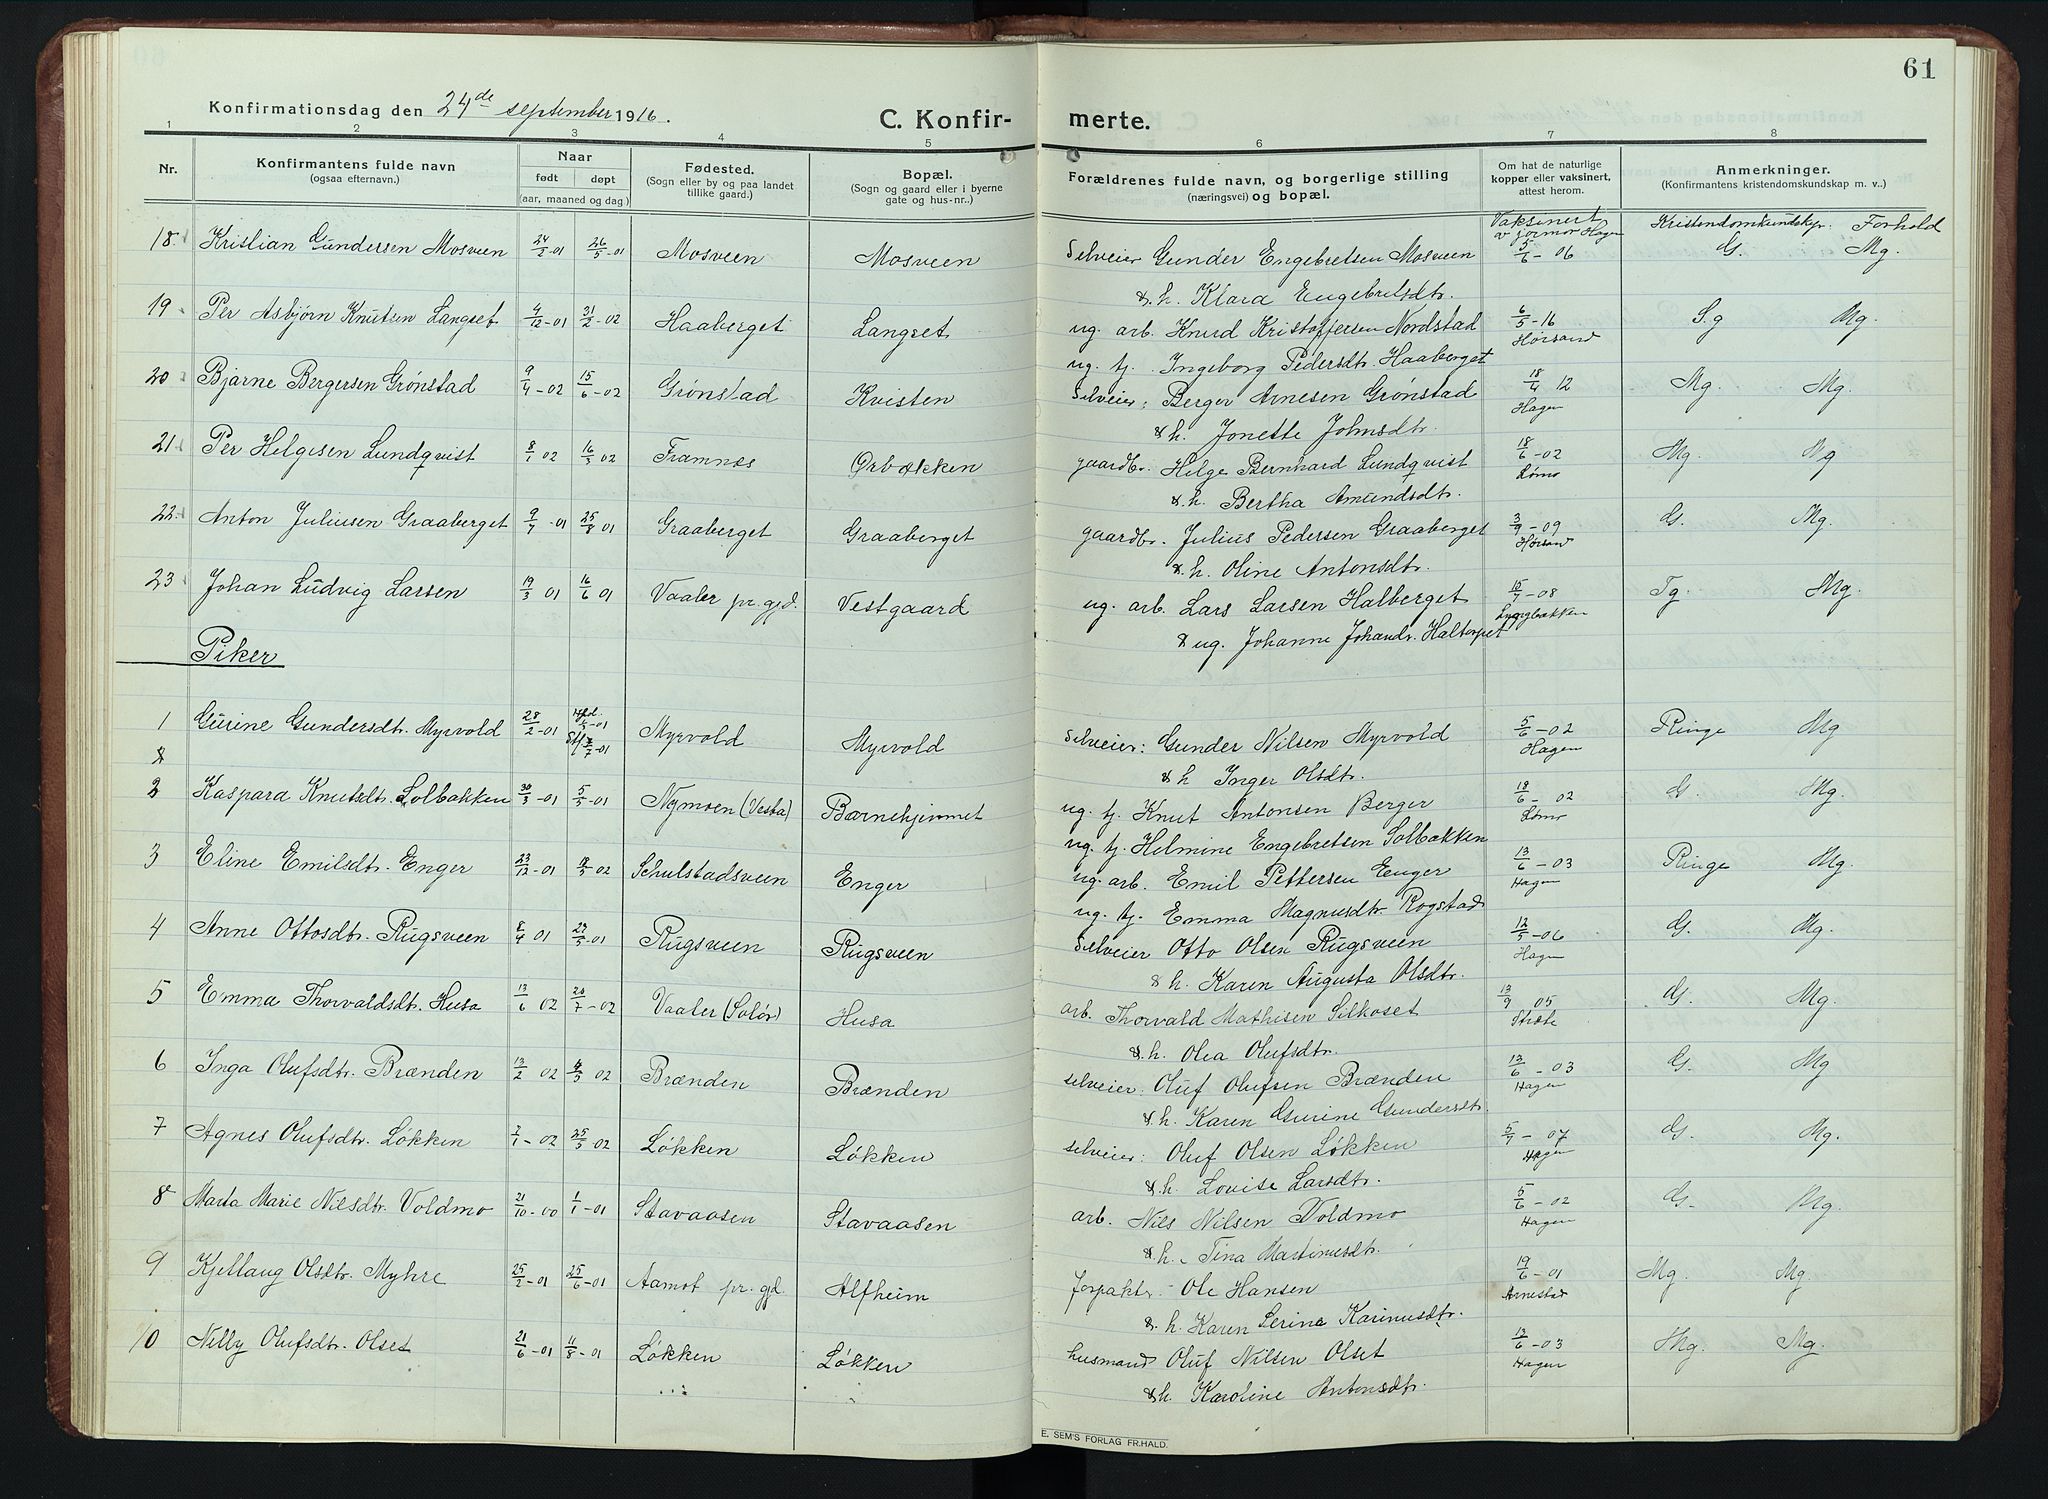 61
Konfirmationsdag den 24de september 1916.
C. Konfirmerte.
1 2 3 4 5 6 7 8
Nr. Konfirmantens fulde navn (ogsaa efternavn.) Naar født døpt (aar, maaned og dag) Fødested. (Sogn eller by og paa landet tillike gaard.) Bopæl. (Sogn og gaard eller i byerne gate og hus-nr..) Forældrenes fulde navn, og borgerlige stilling (næringsvei) og bopæl. Om hat de naturlige kopper eller vaksinert, attest herom. Anmerkninger. (Konfirmantens kristendomskundskap m. v..)
Vaksinert av jormor Hagen Kristendomkundskp. Forhold
18 Kristian Gundersen Mosveen 24/2-01 26/5-01 Mosveen Mosveen Selveier Gunder Engebretsen Mosveen 5/6-06 G. Mg.
& h. Klara Engebretsdtr.
19 Per Asbjørn Knutsen Langset 4/12-01 31/2-02 Haaberget Langset ug. arb. Knud Kristoffersen Nordstad 6/5-16 Hørsand S.g Mg.
ug. tj. Ingeborg Pedersdtr. Haaberget
20 Bjarne Bergersen Grønstad 9/4-02 15/6-02 Grønstad Kvisten Selveier: Berger Arnesen Grønstad 18/4 12 Hagen Mg Mg.
& h. Jonette Johnsdtr.
21 Per Helgesen Lundqvist 8/1 02 16/3 02 Framnæs Ørbækken gaardbr. Helge Bernhard Lundqvist 18/6-02 Lømo Mg. Mg
& h. Bertha Amundsdtr.
22 Anton Juliusen Graaberget 9/7-01 25/8 01 Graaberget Graaberget gaardbr. Julius Pedersen Graaberget 3/9-09 Hørsand G. Mg.
& h. Oline Antonsdtr.
23 Johan Ludvig Larsen 19/3 01 16/6 01 Vaaler pr.gjd. Vestgaard ug. arb. Lars Larsen Halberget 15/7-08 Lyngbækken Tg. Mg.
& ug. Johanne Johandr. Haltorpet
Piker
1 Gurine Gundersdtr. Myrvold 28/2-01 Myrvold Myrvold Selveier: Gunder Nilsen Myrvold 5/6-02 Hagen Ringe Mg
& h Inger Olsdtr.
2 Kaspara Knutsdtr. Solbakken 30/3-01 5/5-01 Nymoen (Vesta) Barnehjemmet ug. tj. Knut Antonsen Berger 18/6-02 Lømo G. Mg.
ug. tj. Helmine Engebretsen Solbakken
3 Eline Emilsdtr. Enger 23/12-01 18/5 02 Schulstadsveen Enger ug. arb. Emil Pettersen Enger 13/6-03 Hagen Ringe Mg.
ug. tj. Emma Magnusdtr. Rogstad
4 Anne Ottosdtr. Rugsveen 8/4 01 27/5-01 Rugsveen Rugsveen Selveier Otto Olsen Rugsveen 12/5-06 Hagen G. Mg.
& h. Karen Augusta Olsdtr.
5 Emma Thorvaldsdt. Husa 13/6 02 20/7-02 Vaaler (Solør) Husa arb. Thorvald Mathisen Silkoset 13/9 05 Stræte G. Mg.
& h. Olea Olufsdtr.
6 Inga Olufsdtr. Brænden 13/2 02 4/3 02 Brænden Brænden selveier: Oluf Olufsen Brænden 13/6-03 Hagen G. Mg
& h. Karen Gurine Gundersdtr.
7 Agnes Olufsdtr. Løkken 7/1-02 25/3 02 Løkken Løkken selveier: Oluf Olsen Løkken 5/7-07 Hagen G. Mg.
& h. Lovise Larsdtr.
8 Marta Marie Nilsdtr. Voldmo 21/10-00 1/1-01 Stavaasen Stavaasen arb. Nils Nilsen Voldmo 5/6-02 Hagen G. Mg.
& h. Tina Martinusdtr.
9 Kjellaug Olsdtr. Myhre 25/2-01 25/6-01 Aamot pr.gjd. Alfheim forpakter Ole Hansen 19/6-01 Arnestad Mg. Mg.
& h. Karen Serine Karinusdtr.
10 Nelly Olufsdtr. Olset 21/6-01 11/8-01 Løkken Løkken husmand Oluf Nilsen Olset 13/6-03 Hagen Mg. Mg.
& h. Karoline Antonsdtr.
E. SEM'S FORLAG FR.HALD.